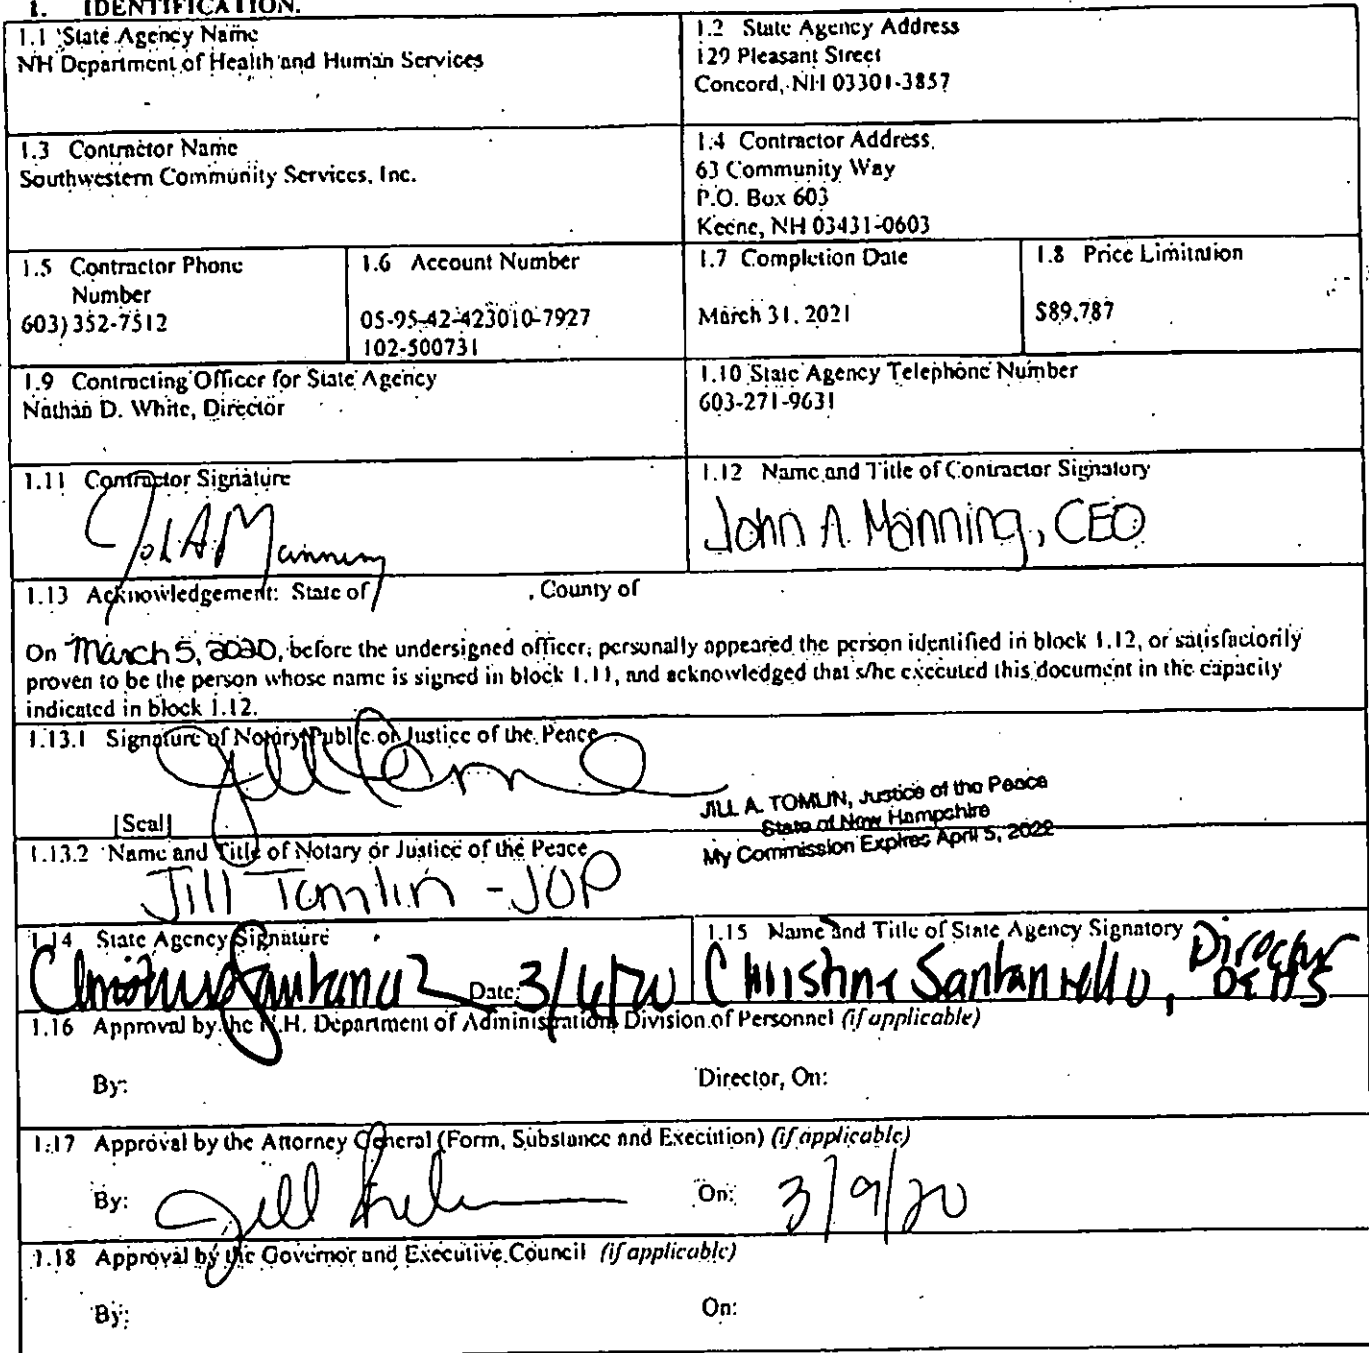 1. IDENTIFICATION.
1.1 State Agency Name
NH Department of Health and Human Services
1.2 State Agency Address
129 Pleasant Street
Concord, NH 03301-3857
1.3 Contractor Name
Southwestern Community Services, Inc.
1.4 Contractor Address
63 Community Way
P.O. Box 603
Keene, NH 03431-0603
1.5 Contractor Phone
Number
603) 352-7512
1.6 Account Number
05-95-42-423010-7927
102-500731
1.7 Completion Date
March 31, 2021
1.8 Price Limitation
$89,787
1.9 Contracting Officer for State Agency
Nathan D. White, Director
1.10 State Agency Telephone Number
603-271-9631
1.11 Contractor Signature
John A Manning
1.12 Name and Title of Contractor Signatory
John A. Manning, CEO
1.13 Acknowledgement: State of , County of
On March 5, 2020, before the undersigned officer, personally appeared the person identified in block 1.12, or satisfactorily
proven to be the person whose name is signed in block 1.11, and acknowledged that s/he executed this document in the capacity
indicated in block 1.12.
1.13.1 Signature of Notary Public or Justice of the Peace
[Seal]
JILL A. TOMLIN, Justice of the Peace
State of New Hampshire
My Commission Expires April 5, 2022
1.13.2 Name and Title of Notary or Justice of the Peace
Jill Tomlin - JOP
1.14 State Agency Signature
Date: 3/6/20
1.15 Name and Title of State Agency Signatory
Christine Santaniello, Director
DEHS
1.16 Approval by the N.H. Department of Administration, Division of Personnel (if applicable)
By: Director, On:
1.17 Approval by the Attorney General (Form, Substance and Execution) (if applicable)
By: Jill On: 3/9/20
1.18 Approval by the Governor and Executive Council (if applicable)
By: On: